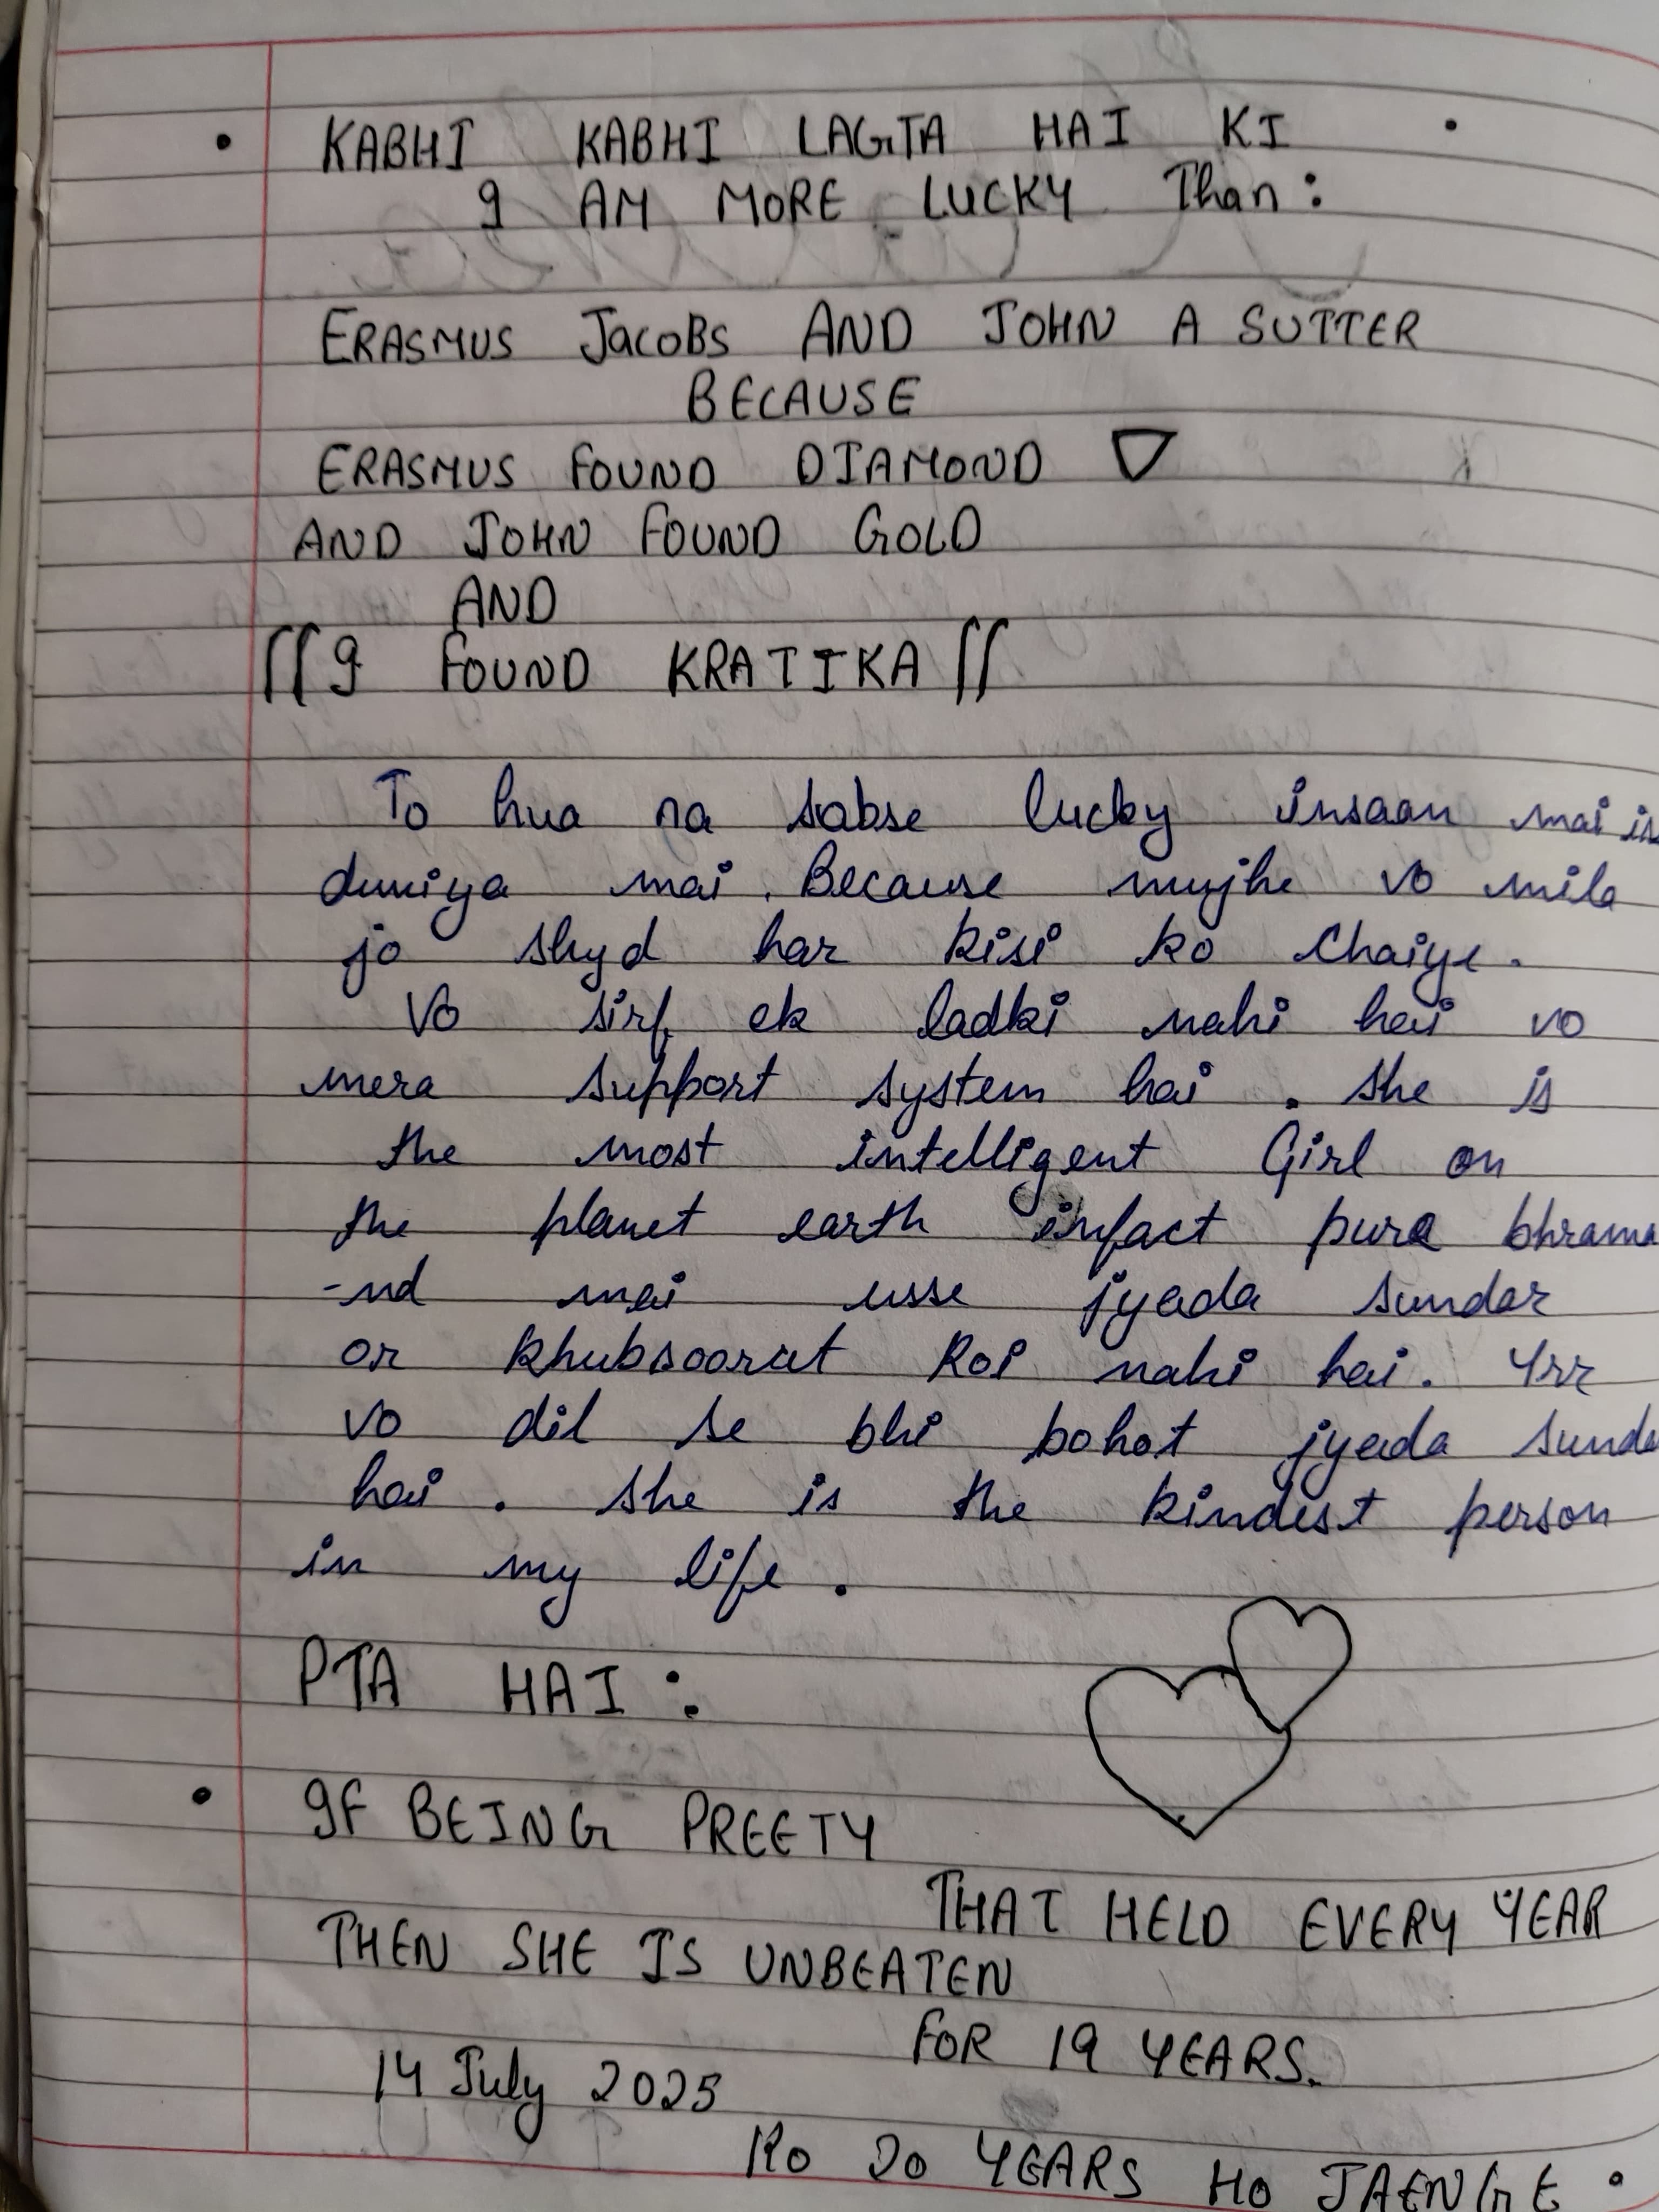 • KABHI KABHI LAGTA HAI KI •
I AM MORE LUCKY Than:
ERASMUS JACOBS AND JOHN A SUTTER
BECAUSE
ERASMUS FOUND DIAMOND
AND JOHN FOUND GOLD
AND
I FOUND KRATIKA
To hua na sabse lucky insaan mai is
duniya mai. Because mujhe vo mila
jo shyd har kisi ko Chaiye.
Vo sirf ek ladki nahi hai vo
mera support system hai. she is
the most intelligent Girl on
the planet earth infact pura bhrama
-nd mai usse jyada sundar
or khubsoorat koi nahi hai. Yrr
vo dil se bhi bohot jyada sunda
hai. she is the kindest person
in my life.
PTA HAI:
• IF BEING PREETY
THAT HELD EVERY YEAR
THEN SHE IS UNBEATEN
FOR 19 YEARS.
14 July 2025
KO 20 YEARS HO JAENGE.